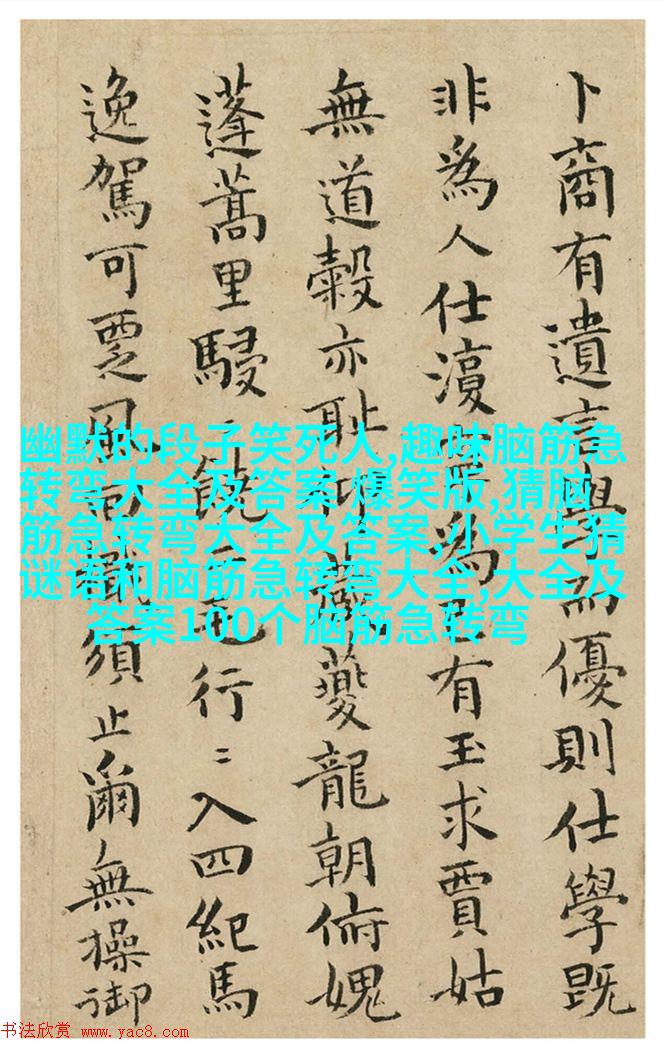 卜商有遺言學而優則仕學既
非爲人仕爲有玉求賈姑
無道穀亦耻夔龍朝俯愧
蓬蒿里駸〻饒二毛行〻入四紀馬
逸駕可覂風須止爾無操御
幽默的段子笑死人,趣味脑筋急
转弯大全及答案 爆笑版,猜脑
筋急转弯大全及答案,小学生猜
谜语和脑筋急转弯大全,大全及
答案100个脑筋急转弯
书法欣赏 www.yac8.com